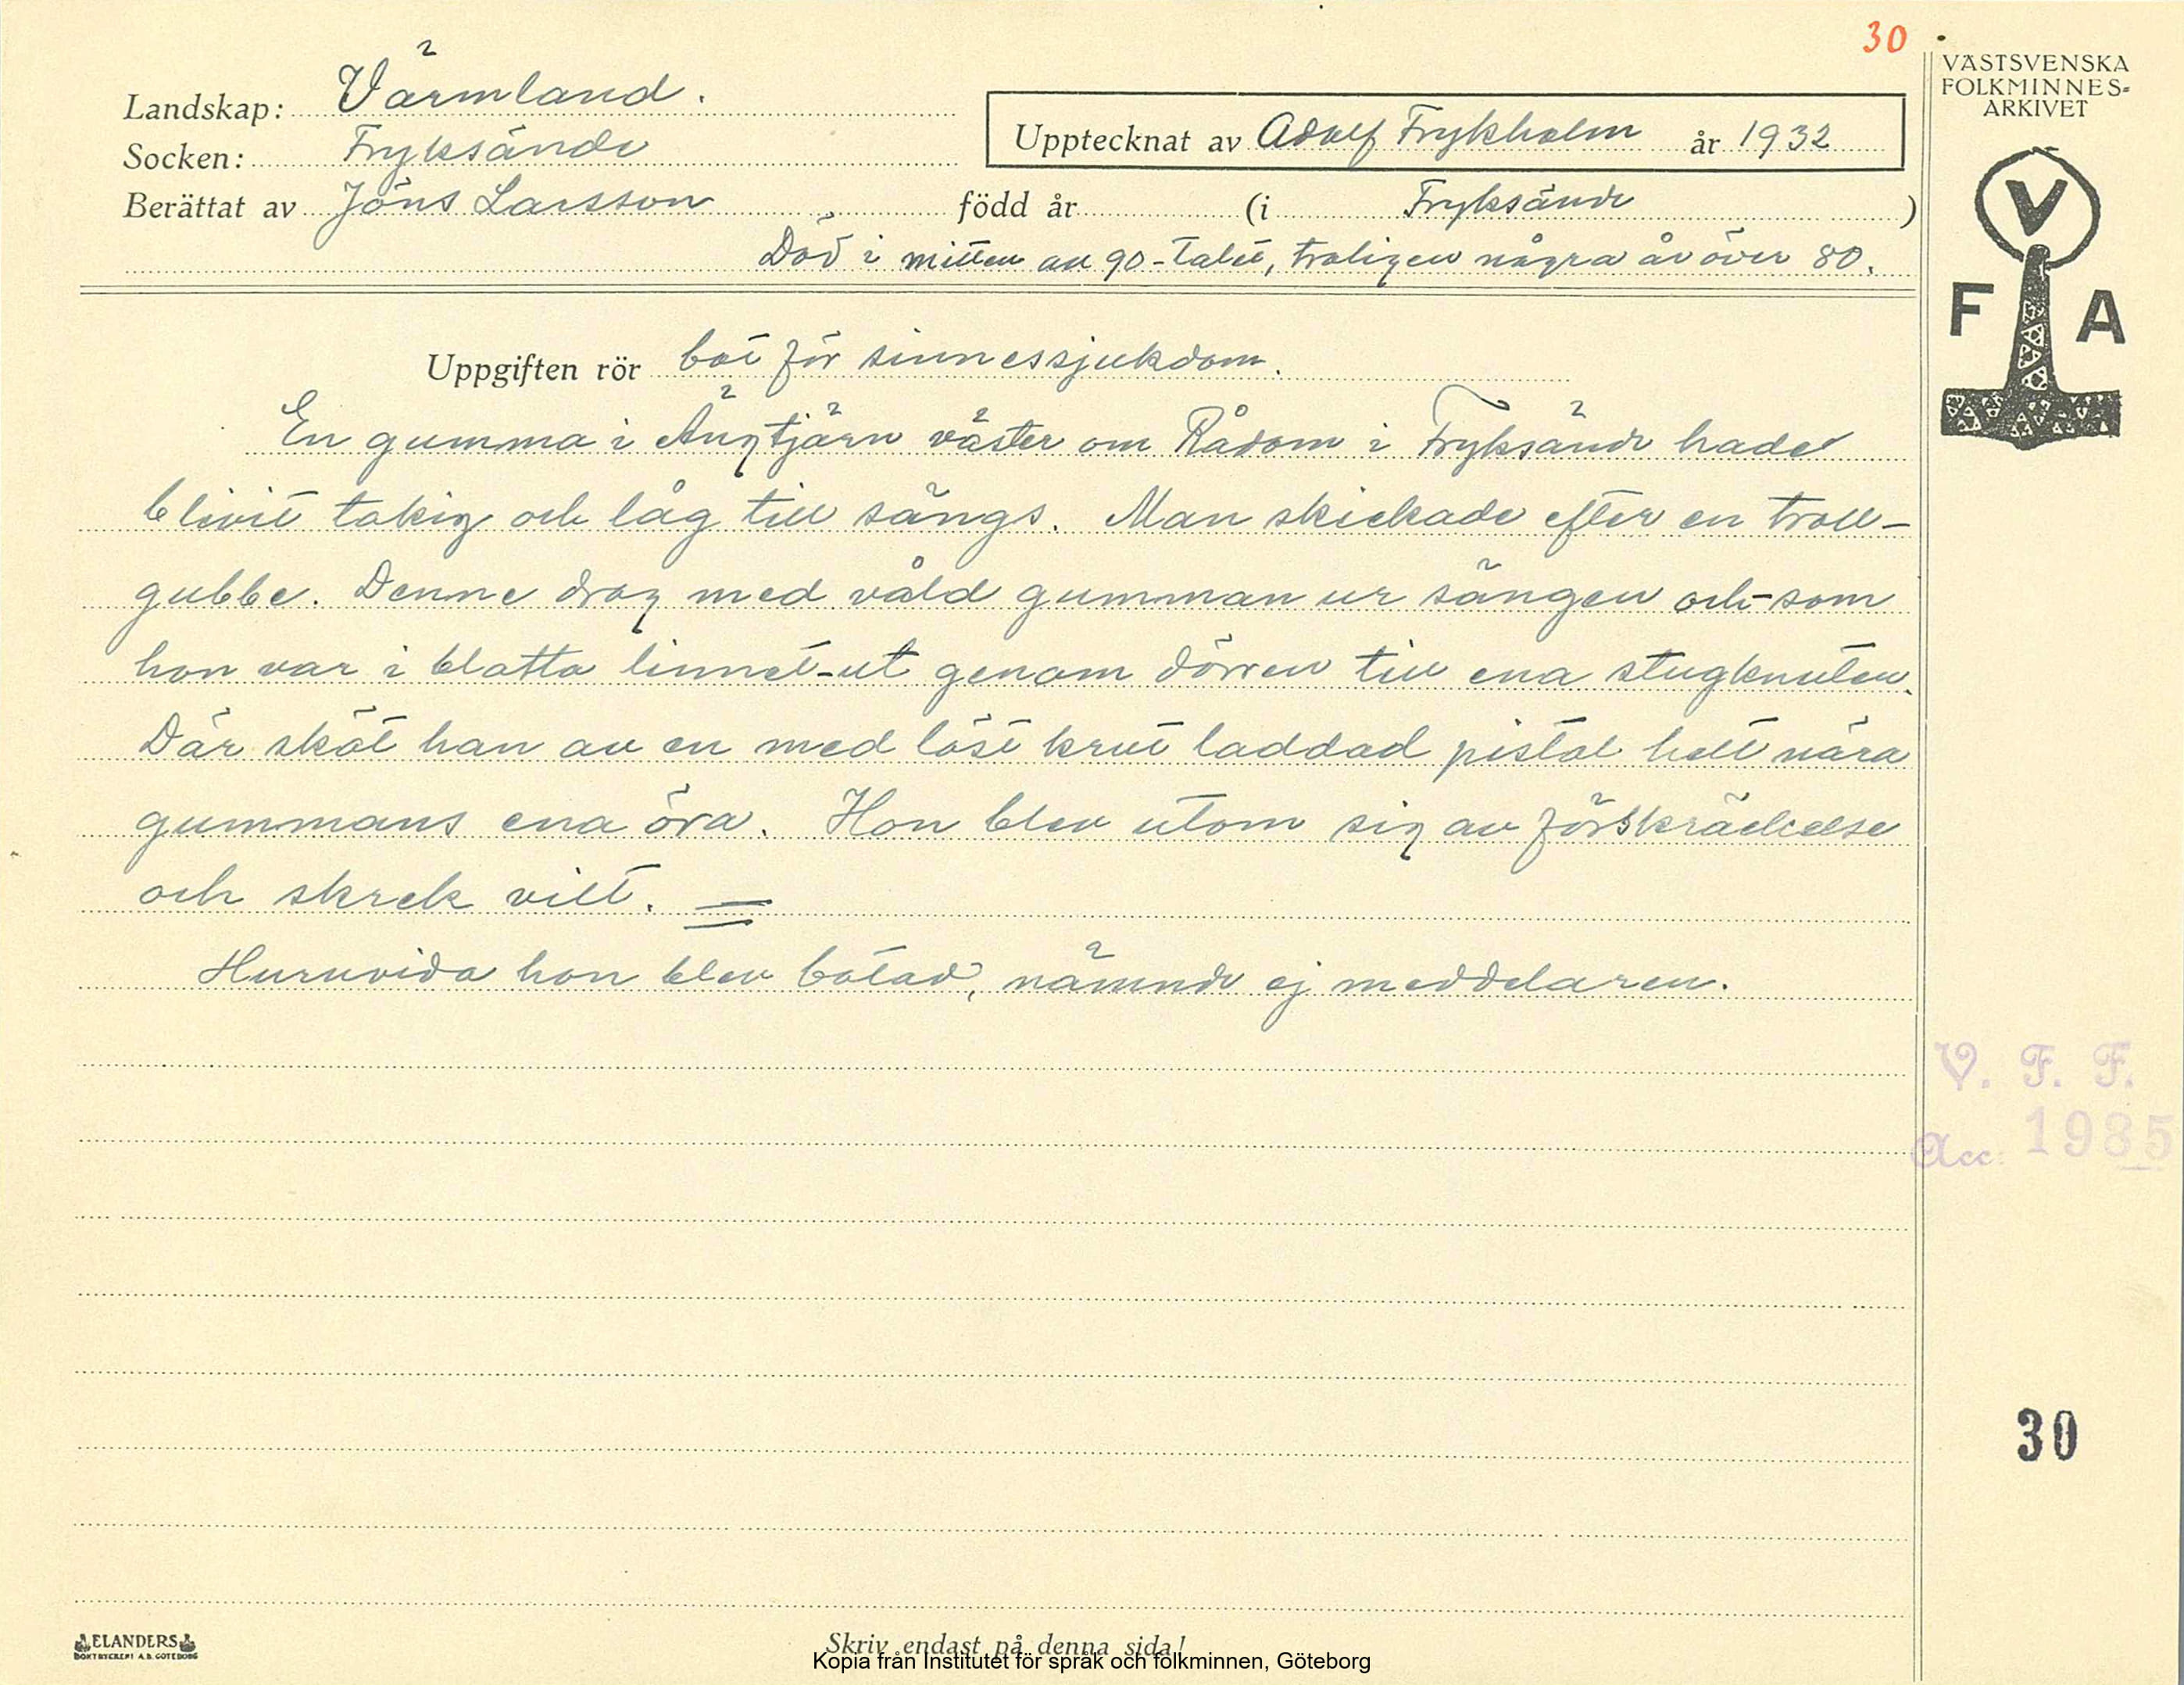 30
VÄSTSVENSKA
FOLKMINNES-
ARKIVET
Landskap: Värmland.
Upptecknat av Adolf Frykholm år 1932
Socken: Fryksände
Berättat av Jöns Larsson född år (i Fryksände)
Död i mitten av 90-talet, troligen några år över 80.
V
F A
Uppgiften rör bot för sinnessjukdom.
En gumma i Ängtjärn väster om Rådom i Fryksände hade
blivit tokig och låg till sängs. Man skickade efter en troll-
gubbe. Denne drog med våld gumman ur sängen och - som
hon var i blotta linnet - ut genom dörren till ena stugknuten.
Där sköt han av en med löst krut laddad pistol helt nära
gummans ena öra. Hon blev utom sig av förskräckelse
och skrek vilt. =
Huruvida hon blev botad, nämnde ej meddelaren.
V. F. F.
Acc. 1985
30
ELANDERS
BOKTRYCKERI A.B. GÖTEBORG
Skriv endast på denna sida!
Kopia från Institutet för språk och folkminnen, Göteborg